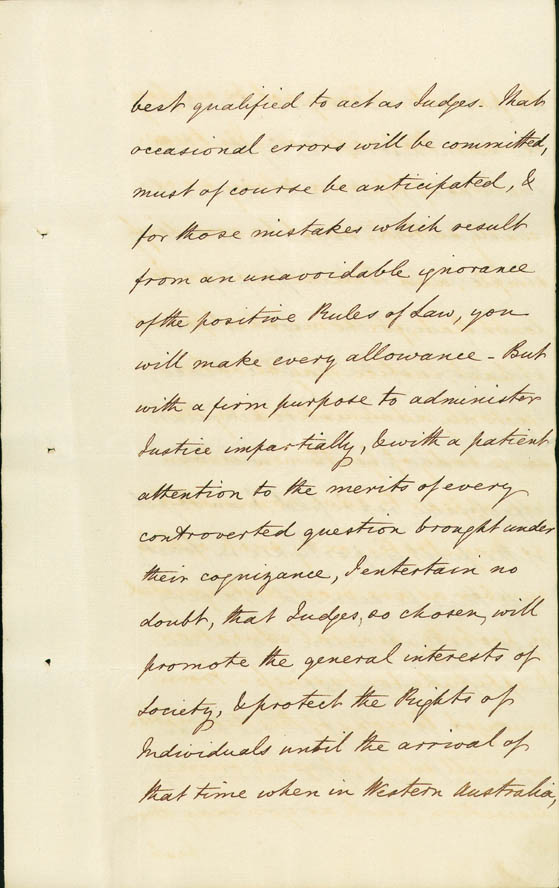 best qualified to act as Judges - That
occasional errors will be committed,
must of course be anticipated, &
for those mistakes which result
from an unavoidable ignorance
of the positive Rules of Law, you
will make every allowance - But
with a firm purpose to administer
Justice impartially, & with a patient
attention to the merits of every
controverted question brought under
their cognizance, I entertain no
doubt, that Judges, so chosen, will
promote the general interests of
Society, & protect the Rights of
Individuals until the arrival of
that time when in Western Australia,